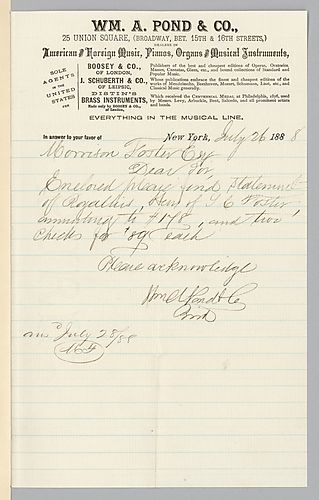 WM. A. POND & CO.,
25 UNION SQUARE, (BROADWAY, BET. 15TH & 16TH STREETS,)
DEALERS IN
American and Foreign Music, Pianos, Organs and Musical Instruments,
SOLE
AGENTS
IN THE
UNITED
STATES
FOR
BOOSEY & CO.,
OF LONDON,
J. SCHUBERTH & CO.
OF LEIPSIC,
DISTIN'S
BRASS INSTRUMENTS,
Made only by BOOSEY & CO.,
of London,
Publishers of the best and cheapest editions of Operas, Oratorios, Masses, Cantatas, Glees, etc., and bound collections of Standard and Popular Music.
Whose publications embrace the finest and cheapest editions of the works of Mendelssohn, Beethoven, Mozart, Schumann, Liszt, etc., and Classical Music generally.
Which received the CENTENNIAL MEDAL at Philadelphia, 1876, used by Messrs. Levy, Arbuckle, Bent, and all prominent artists and bands.
EVERYTHING IN THE MUSICAL LINE.
In answer to your favor of
New York, July 26 1888
Morrison Foster Esq
Dear Sir,
Enclosed please find statement
of Royalties, Heirs of S C Foster
amounting to $178, and two
checks for $89 each
Please acknowledge
Wm A Pond & Co
ans'd July 28/88